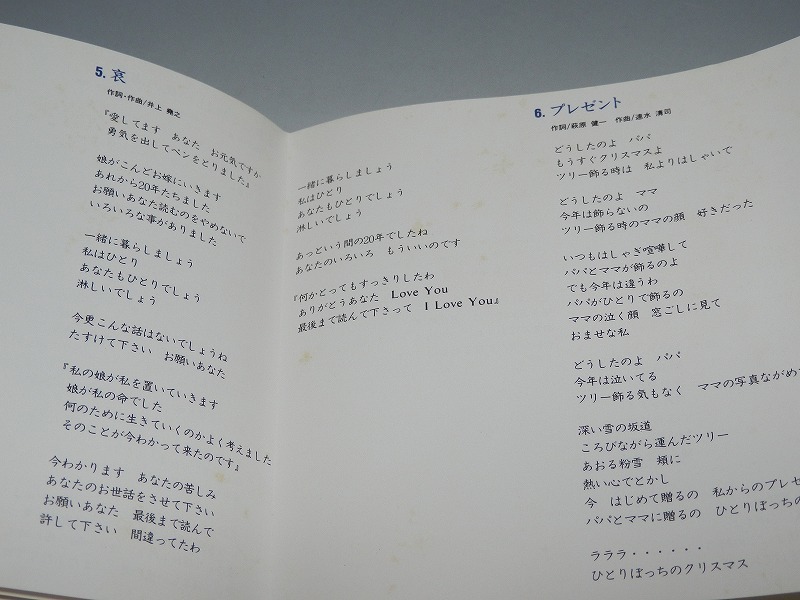 5. 哀
作詞・作曲/井上 堯之
『愛してます　あなた　お元気ですか
勇気を出してペンをとりました』
娘がこんどお嫁にいきます
あれから20年たちました
お願いあなた読むのをやめないで
いろいろな事がありました
一緒に暮らしましょう
私はひとり
あなたもひとりでしょう
淋しいでしょう
今更こんな話はないでしょうね
たすけて下さい　お願いあなた
『私の娘が私を置いていきます
娘が私の命でした
何のために生きていくのかよく考えました
そのことが今わかって来たのです』
今わかります　あなたの苦しみ
あなたのお世話をさせて下さい
お願いあなた　最後まで読んで
許して下さい　間違ってたわ
一緒に暮らしましょう
私はひとり
あなたもひとりでしょう
淋しいでしょう
あっという間の20年でしたね
あなたのいろいろ　もういいのです
『何かとってもすっきりしたわ
ありがとうあなた　Love You
最後まで読んで下さって　I Love You』
6. プレゼント
作詞/萩原 健一　作曲/速水 清司
どうしたのよ　パパ
もうすぐクリスマスよ
ツリー飾る時は　私よりはしゃいで
どうしたのよ　ママ
今年は飾らないの
ツリー飾る時のママの顔　好きだった
いつもはしゃぎ喧嘩して
パパとママが飾るのよ
でも今年は違うわ
パパがひとりで飾るの
ママの泣く顔　窓ごしに見て
おませな私
どうしたのよ　パパ
今年は泣いてる
ツリー飾る気もなく　ママの写真ながめ
深い雪の坂道
ころびながら運んだツリー
あおる粉雪　頬に
熱い心でとかし
今　はじめて贈るの　私からのプレゼ
パパとママに贈るの　ひとりぼっちの
ラララ・・・・・・
ひとりぼっちのクリスマス